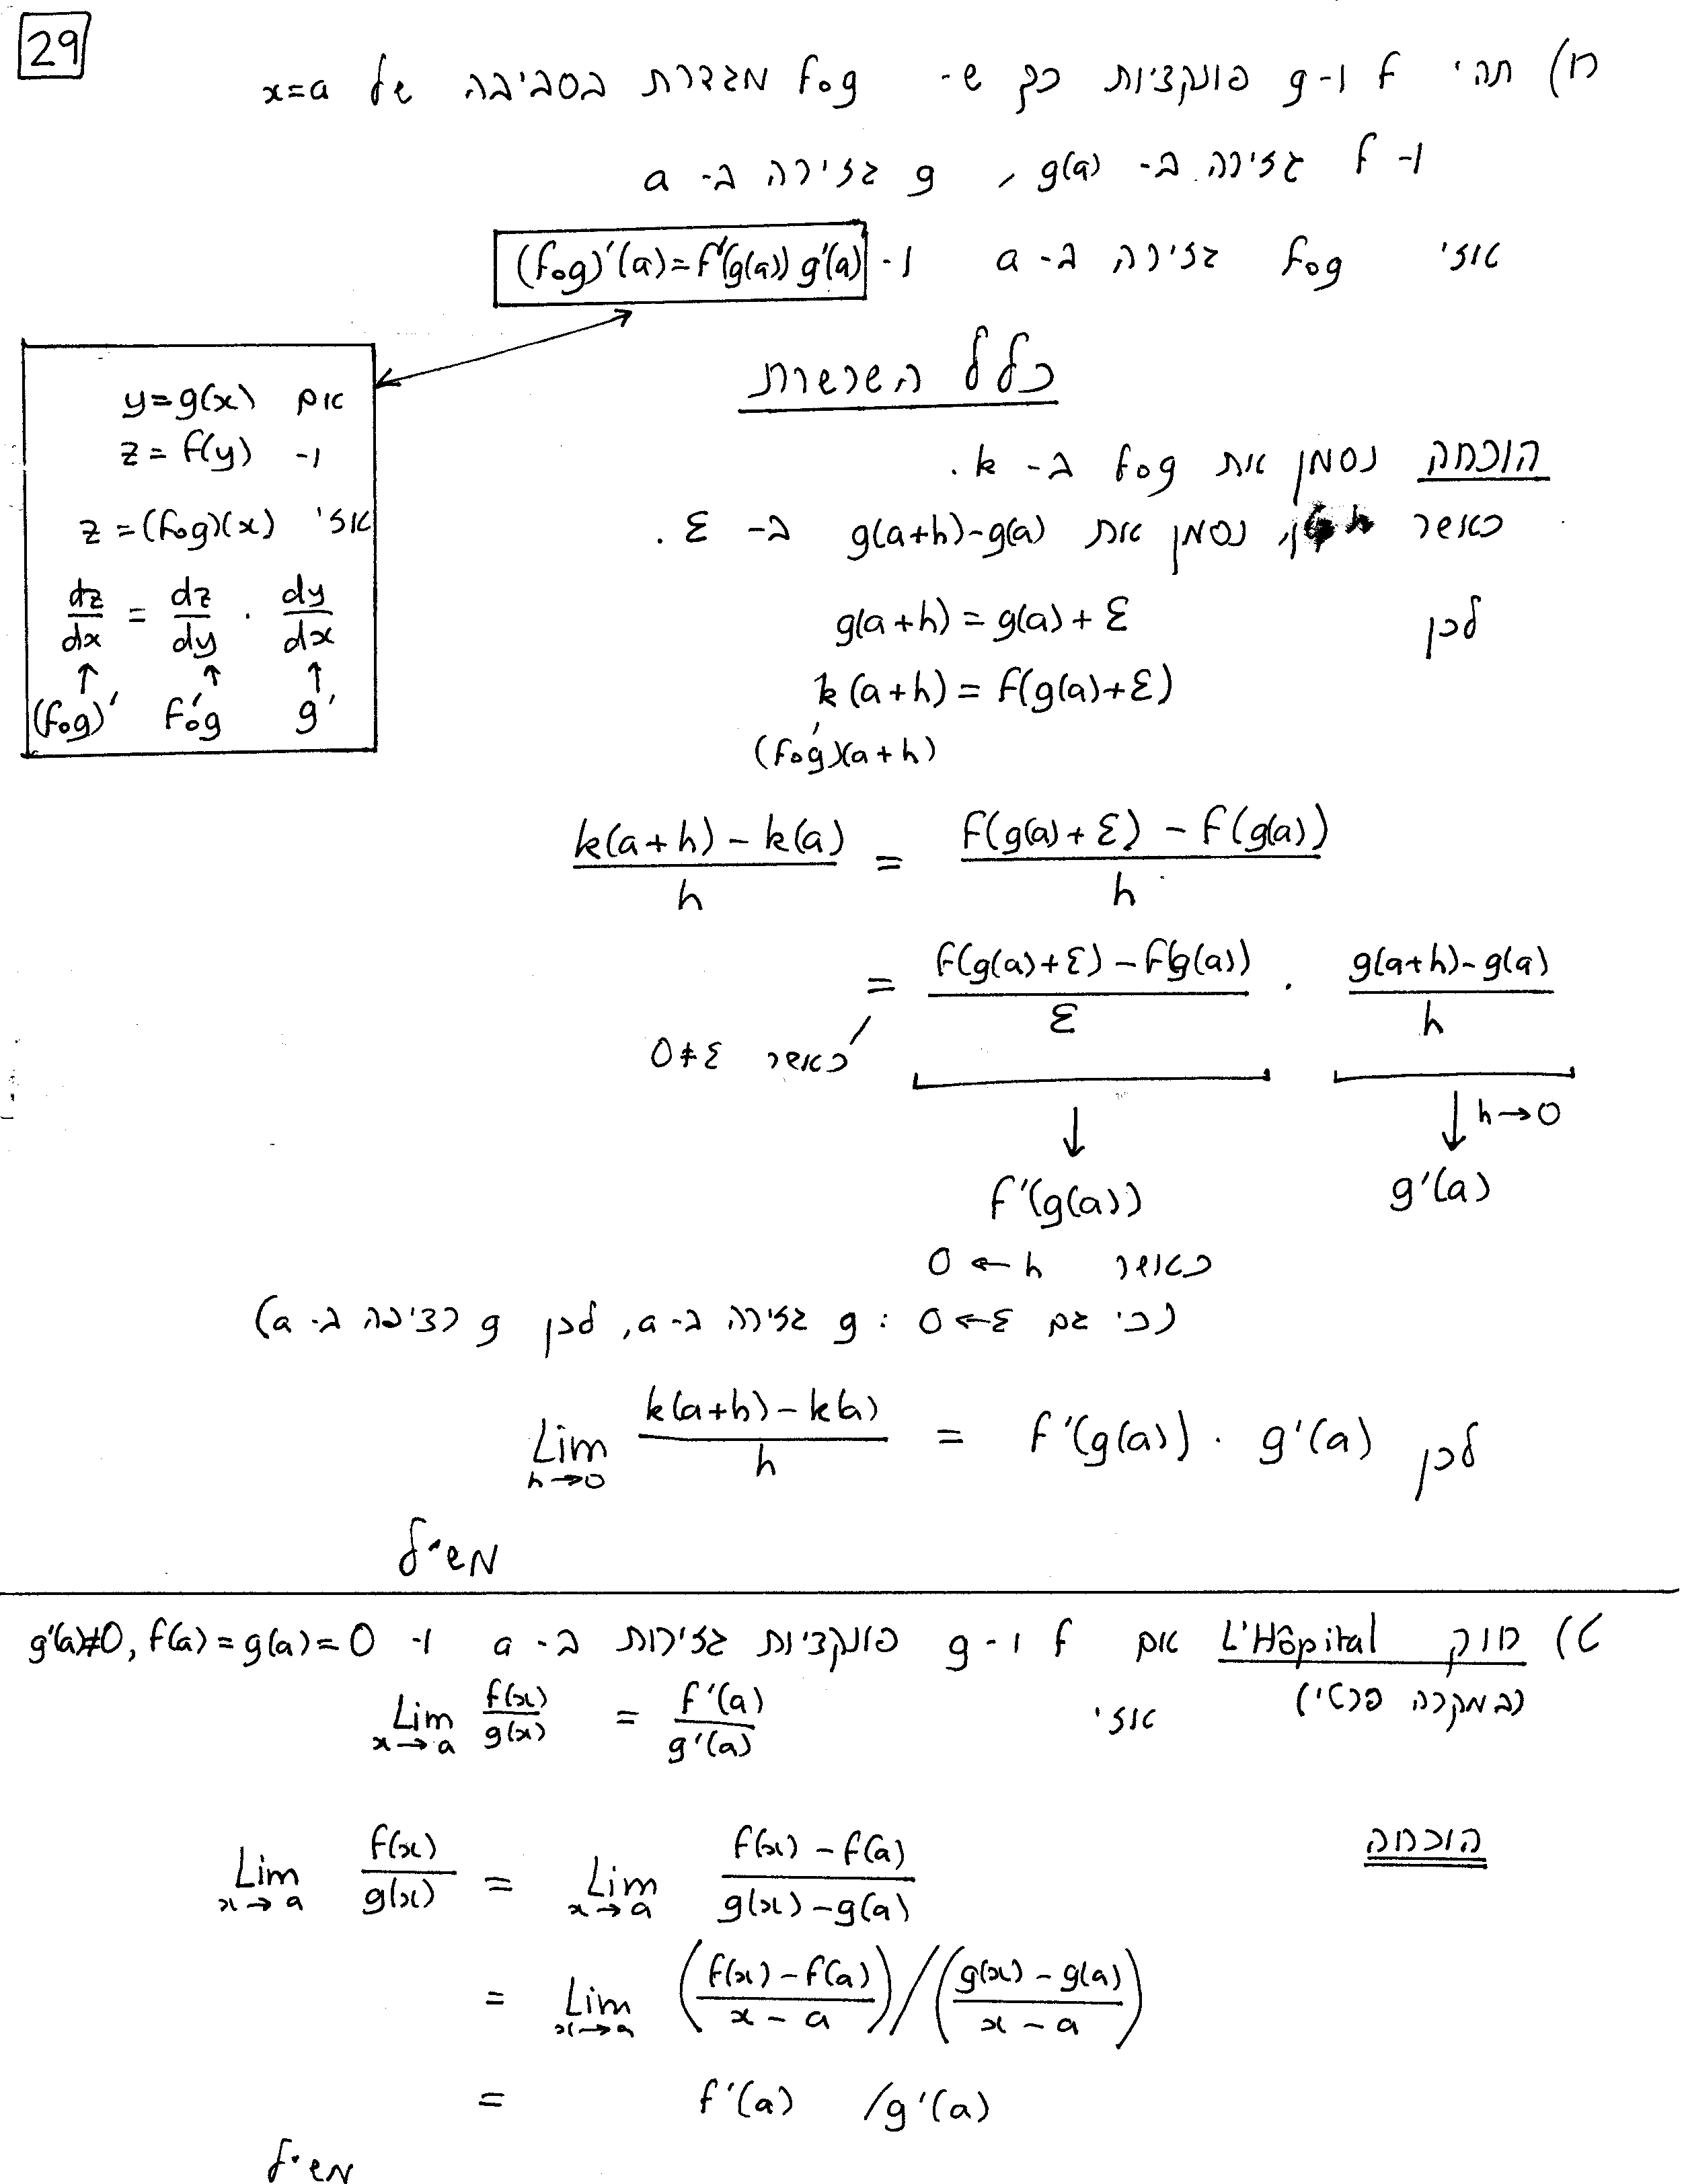 29
ח) תהי f ו-g פונקציות כך ש- f∘g מגדרת בסביבה של x=a
ו- f גזירה ב- g(a), g גזירה ב- a
אזי f∘g גזירה ב- a ו- (f∘g)'(a)=f'(g(a)) g'(a)
כלל השרשרת
אם y=g(x)
ו- z=f(y)
אזי z=(f∘g)(x)
dz/dx = dz/dy · dy/dx
↑ ↑ ↑
(f∘g)' f'∘g g'
הוכחה נסמן את f∘g ב- k.
כאשר קטן, נסמן את g(a+h)-g(a) ב- ε.
לכן g(a+h) = g(a) + ε
k(a+h) = f(g(a)+ε)
(f∘g)(a+h)
(k(a+h) - k(a))/h = (f(g(a)+ε) - f(g(a)))/h
= (f(g(a)+ε) - f(g(a)))/ε · (g(a+h)-g(a))/h
כאשר ε≠0
↓ ↓ h→0
f'(g(a)) g'(a)
כאשר h → 0
(כי גם ε → 0 : g גזירה ב- a, לכן g רציפה ב- a)
לכן Lim h→0 (k(a+h) - k(a))/h = f'(g(a)) · g'(a)
מש״ל
ט) חוק L'Hôpital אם f ו-g פונקציות גזירות ב- a ו- g'(a)≠0, f(a)=g(a)=0
(במקרה פרטי) אזי Lim x→a f(x)/g(x) = f'(a)/g'(a)
הוכחה
Lim x→a f(x)/g(x) = Lim x→a (f(x) - f(a))/(g(x) - g(a))
= Lim x→a ((f(x) - f(a))/(x - a)) / ((g(x) - g(a))/(x - a))
= f'(a) / g'(a)
מש״ל